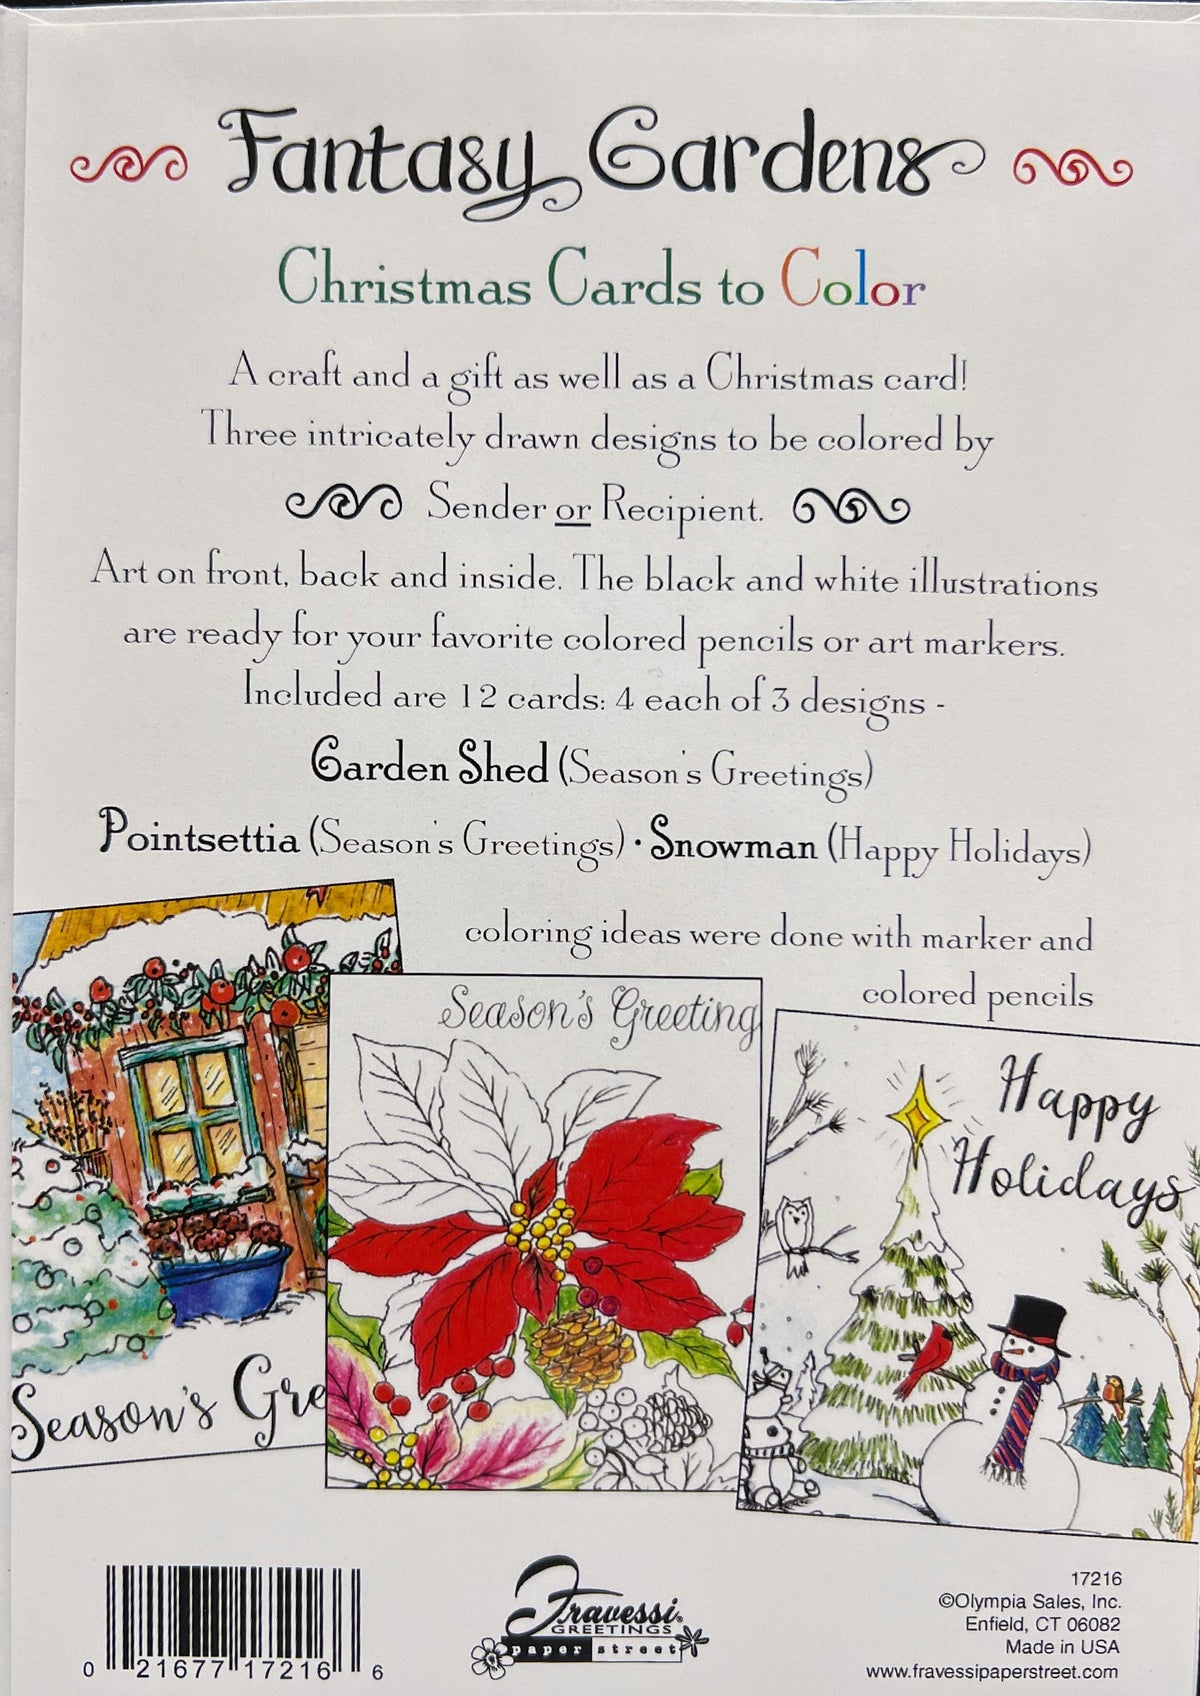 Fantasy Gardens
Christmas Cards to Color
A craft and a gift as well as a Christmas card!
Three intricately drawn designs to be colored by
Sender or Recipient.
Art on front, back and inside. The black and white illustrations
are ready for your favorite colored pencils or art markers.
Included are 12 cards: 4 each of 3 designs -
Garden Shed (Season's Greetings)
Pointsettia (Season's Greetings) · Snowman (Happy Holidays)
coloring ideas were done with marker and
colored pencils
Season's Gre
Season's Greeting
Happy
Holidays
0 21677 17216 6
Fravessi
GREETINGS
paper street
17216
©Olympia Sales, Inc.
Enfield, CT 06082
Made in USA
www.fravessipaperstreet.com